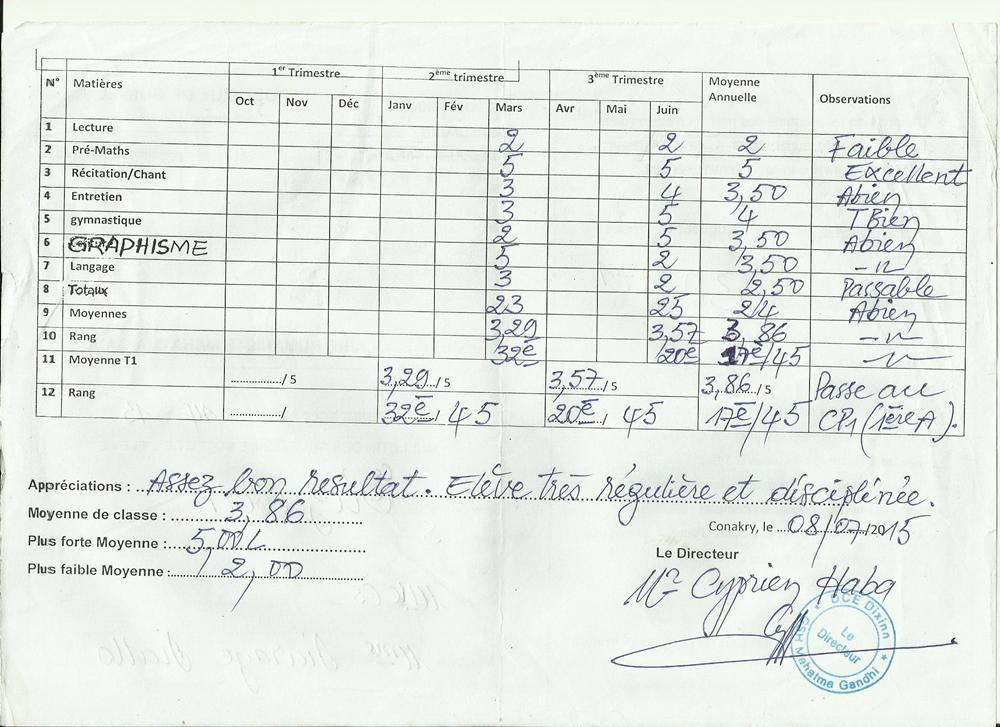 N° Matières 1er Trimestre 2ème trimestre 3ème Trimestre Moyenne Annuelle Observations
Oct Nov Déc Janv Fév Mars Avr Mai Juin
1 Lecture 2 2 2 Faible
2 Pré-Maths 5 5 5 Excellent
3 Récitation/Chant 3 4 3,50 Abien
4 Entretien 3 5 4 TBien
5 gymnastique 2 5 3,50 Abien
6 GRAPHISME 5 2 3,50 -"-
7 Langage 3 2 2,50 Passable
8 Totaux 23 25 24 Abien
9 Moyennes 3,29 3,57 3,86 -"-
10 Rang 32è 20è 17è/45 -"-
11 Moyenne T1 ............../ 5 3,29../ 5 3,57./5 3,86./5 Passe au
12 Rang ............../ 32è / 45 20è / 45 17è/45 CP1 (1ère A).
Appréciations : Assez bon resultat. Elève très régulière et disciplinée.
Moyenne de classe : 3,86
Conakry, le 08/07/2015
Plus forte Moyenne :
Le Directeur
Plus faible Moyenne : 2,00
Mr Cyprien Haba
DCE Dixinn
Le Directeur
Mahatma Gandhi